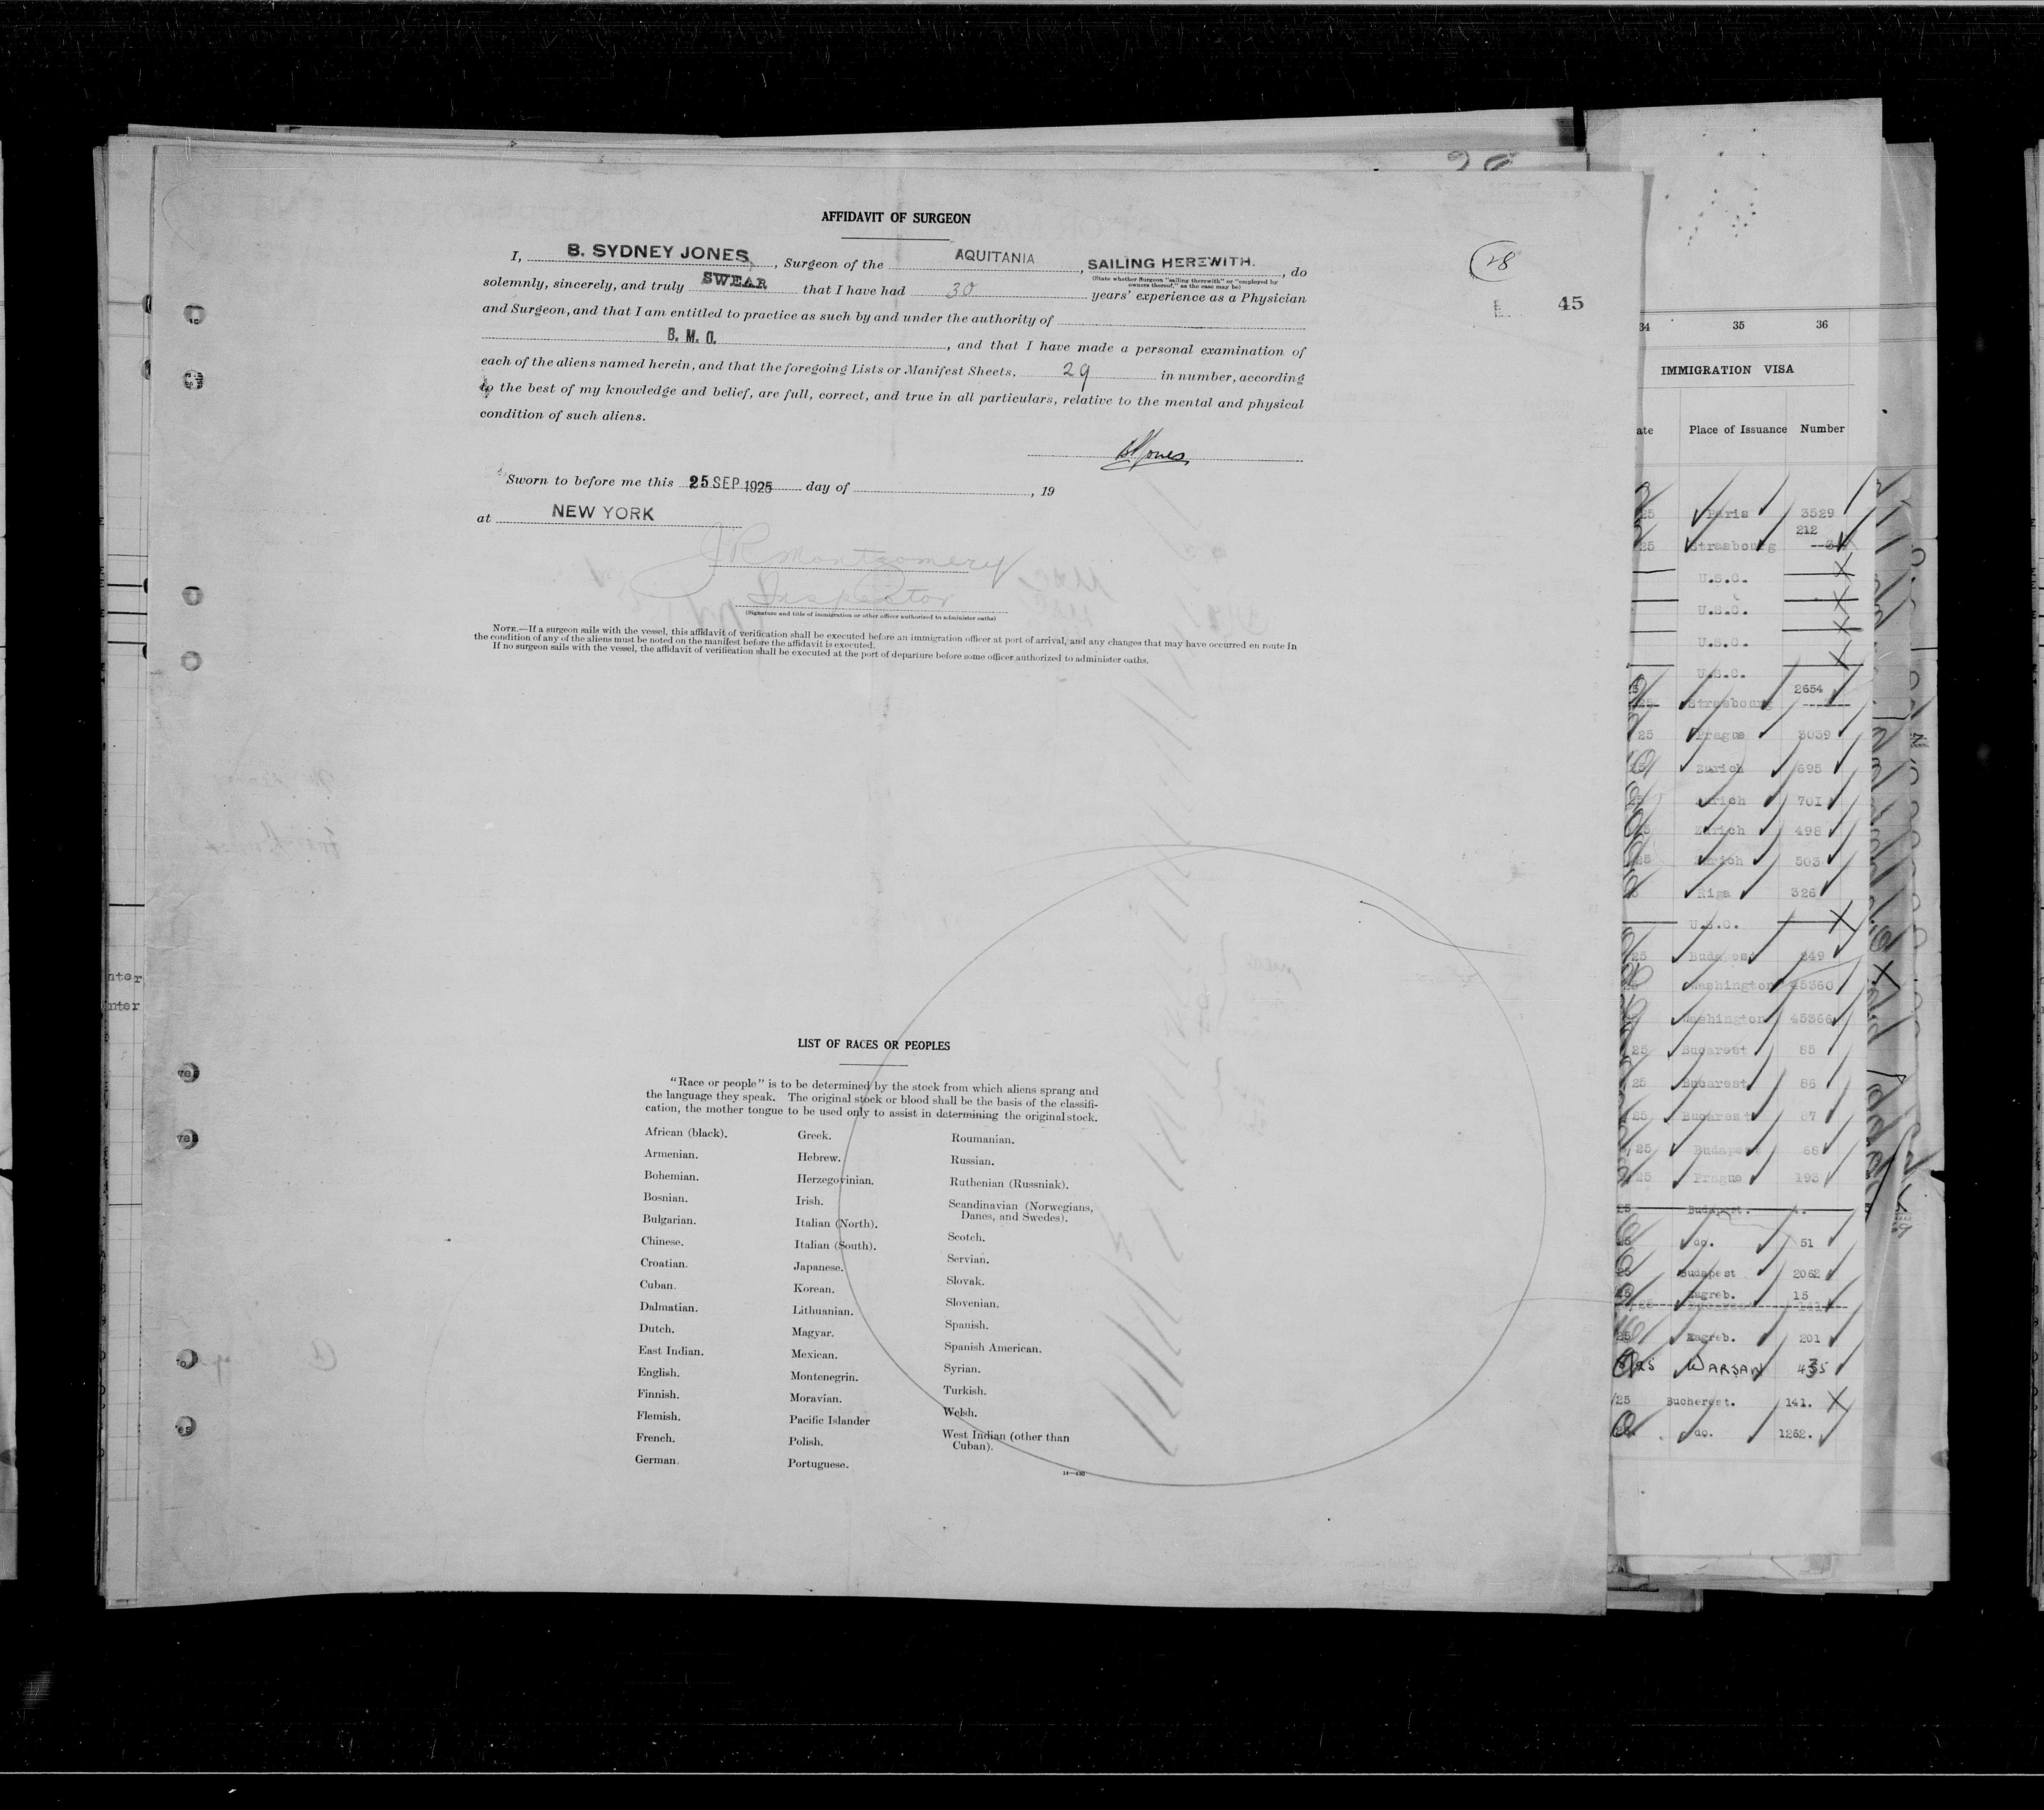 AFFIDAVIT OF SURGEON
I, B. SYDNEY JONES, Surgeon of the AQUITANIA, SAILING HEREWITH., do
(State whether Surgeon "sailing therewith" or "employed by
owners thereof," as the case may be)
solemnly, sincerely, and truly SWEAR that I have had 30 years' experience as a Physician
and Surgeon, and that I am entitled to practice as such by and under the authority of
B. M. O., and that I have made a personal examination of
each of the aliens named herein, and that the foregoing Lists or Manifest Sheets, 29 in number, according
to the best of my knowledge and belief, are full, correct, and true in all particulars, relative to the mental and physical
condition of such aliens.
Jones
Sworn to before me this 25 SEP 1925 day of , 19
at NEW YORK
J R Montgomery
Inspector
(Signature and title of immigration or other officer authorized to administer oaths)
NOTE.—If a surgeon sails with the vessel, this affidavit of verification shall be executed before an immigration officer at port of arrival, and any changes that may have occurred en route in
the condition of any of the aliens must be noted on the manifest before the affidavit is executed.
If no surgeon sails with the vessel, the affidavit of verification shall be executed at the port of departure before some officer authorized to administer oaths.
28
45
LIST OF RACES OR PEOPLES
"Race or people" is to be determined by the stock from which aliens sprang and
the language they speak. The original stock or blood shall be the basis of the classifi-
cation, the mother tongue to be used only to assist in determining the original stock.
African (black).
Armenian.
Bohemian.
Bosnian.
Bulgarian.
Chinese.
Croatian.
Cuban.
Dalmatian.
Dutch.
East Indian.
English.
Finnish.
Flemish.
French.
German.
Greek.
Hebrew.
Herzegovinian.
Irish.
Italian (North).
Italian (South).
Japanese.
Korean.
Lithuanian.
Magyar.
Mexican.
Montenegrin.
Moravian.
Pacific Islander
Polish.
Portuguese.
Roumanian.
Russian.
Ruthenian (Russniak).
Scandinavian (Norwegians,
Danes, and Swedes).
Scotch.
Servian.
Slovak.
Slovenian.
Spanish.
Spanish American.
Syrian.
Turkish.
Welsh.
West Indian (other than
Cuban).
34 35 36
IMMIGRATION VISA
ate Place of Issuance Number
25 Paris 3529
212
25 Strasbourg
U.S.C.
U.S.C.
U.S.C.
U.S.C.
2654
Strasbourg
25 Prague 3039
25 Zurich 695
25 Zurich 701
25 Zurich 498
25 Zurich 503
Riga 326
U.S.C.
25 Budapest 349
Washington 45360
Washington 45366
25 Bucarest 85
25 Bucarest 86
25 Bucarest 87
25 Budapest 68
25 Prague 193
25 Budapest. 4.
25 do. 51
25 Budapest 2062
25 Zagreb. 15
25 Zagreb. 201
25 WARSAW 435
/25 Bucherest. 141.
25 do. 1262.
nter
nter